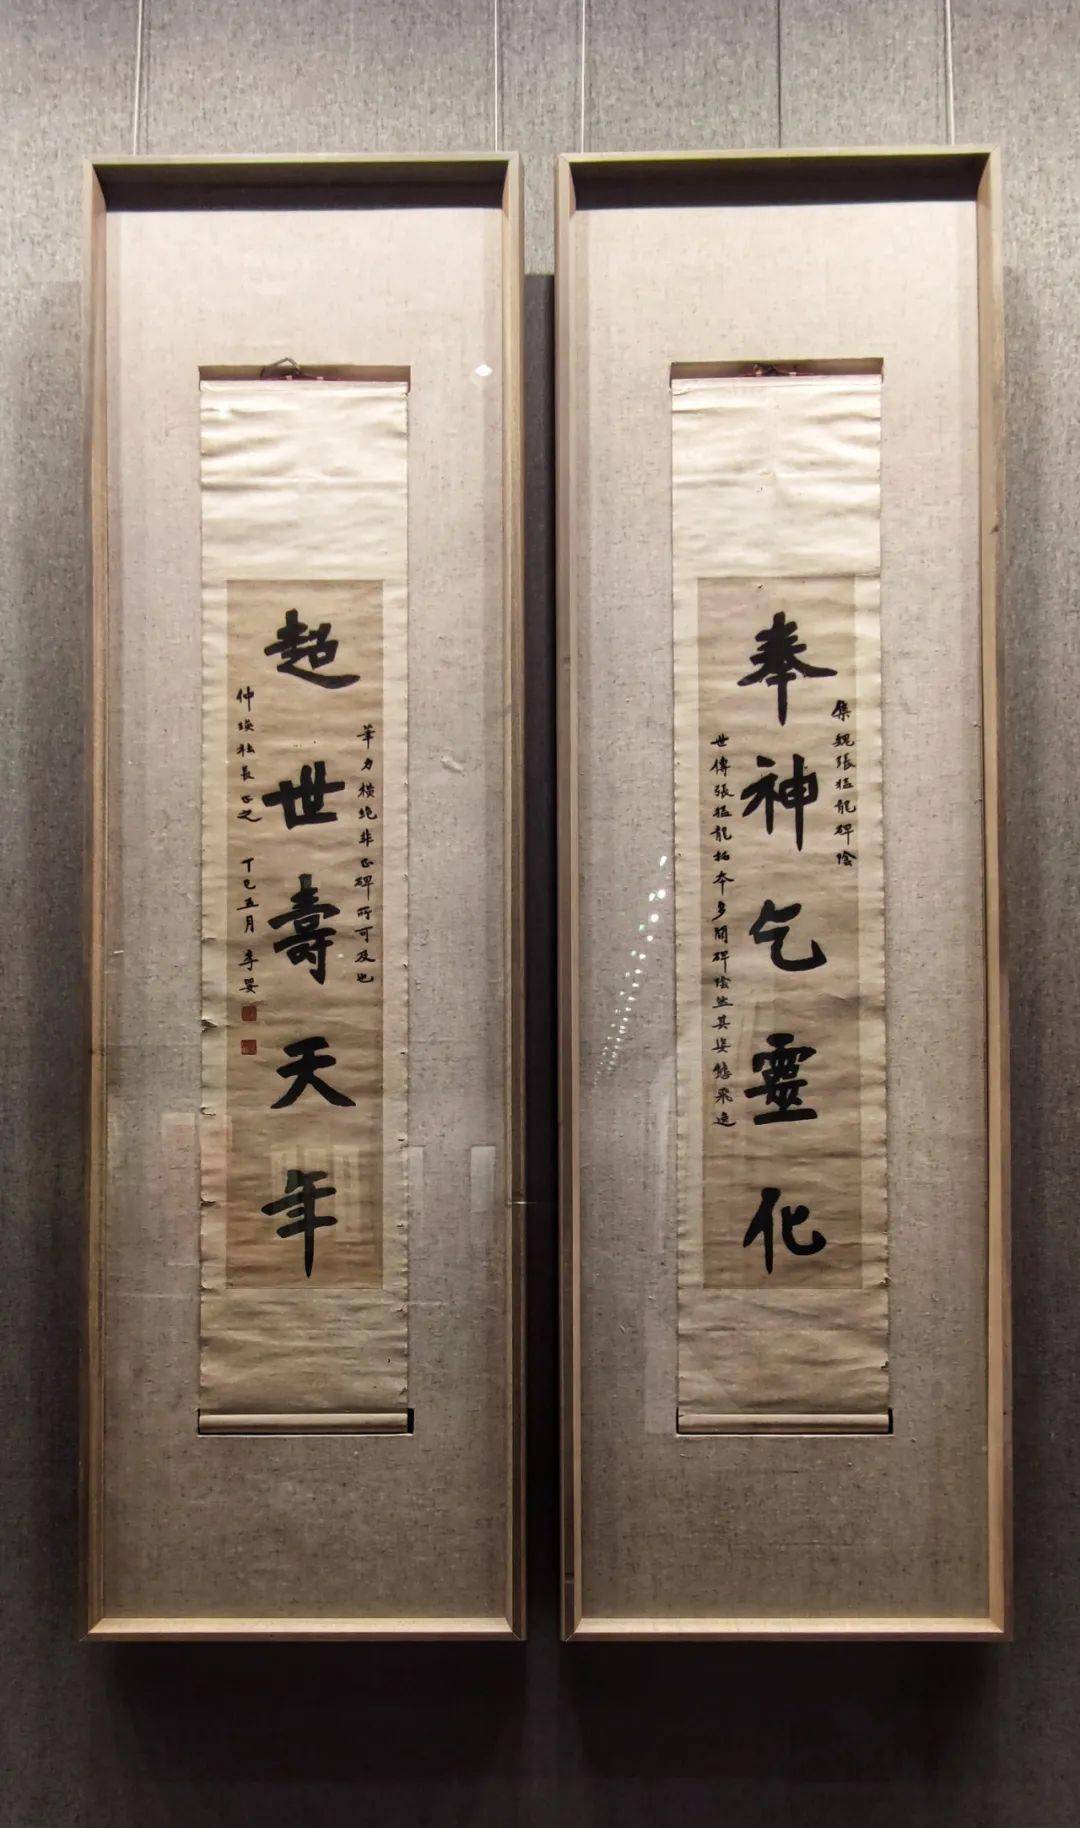 奉神气靈化
集魏張猛龍碑陰
世傳張猛龍拓本多闕碑陰然其姿態飛逸
超世壽天年
筆力橫絶非正碑所可及也
仲瑛社長正之 丁巳五月 李嬰